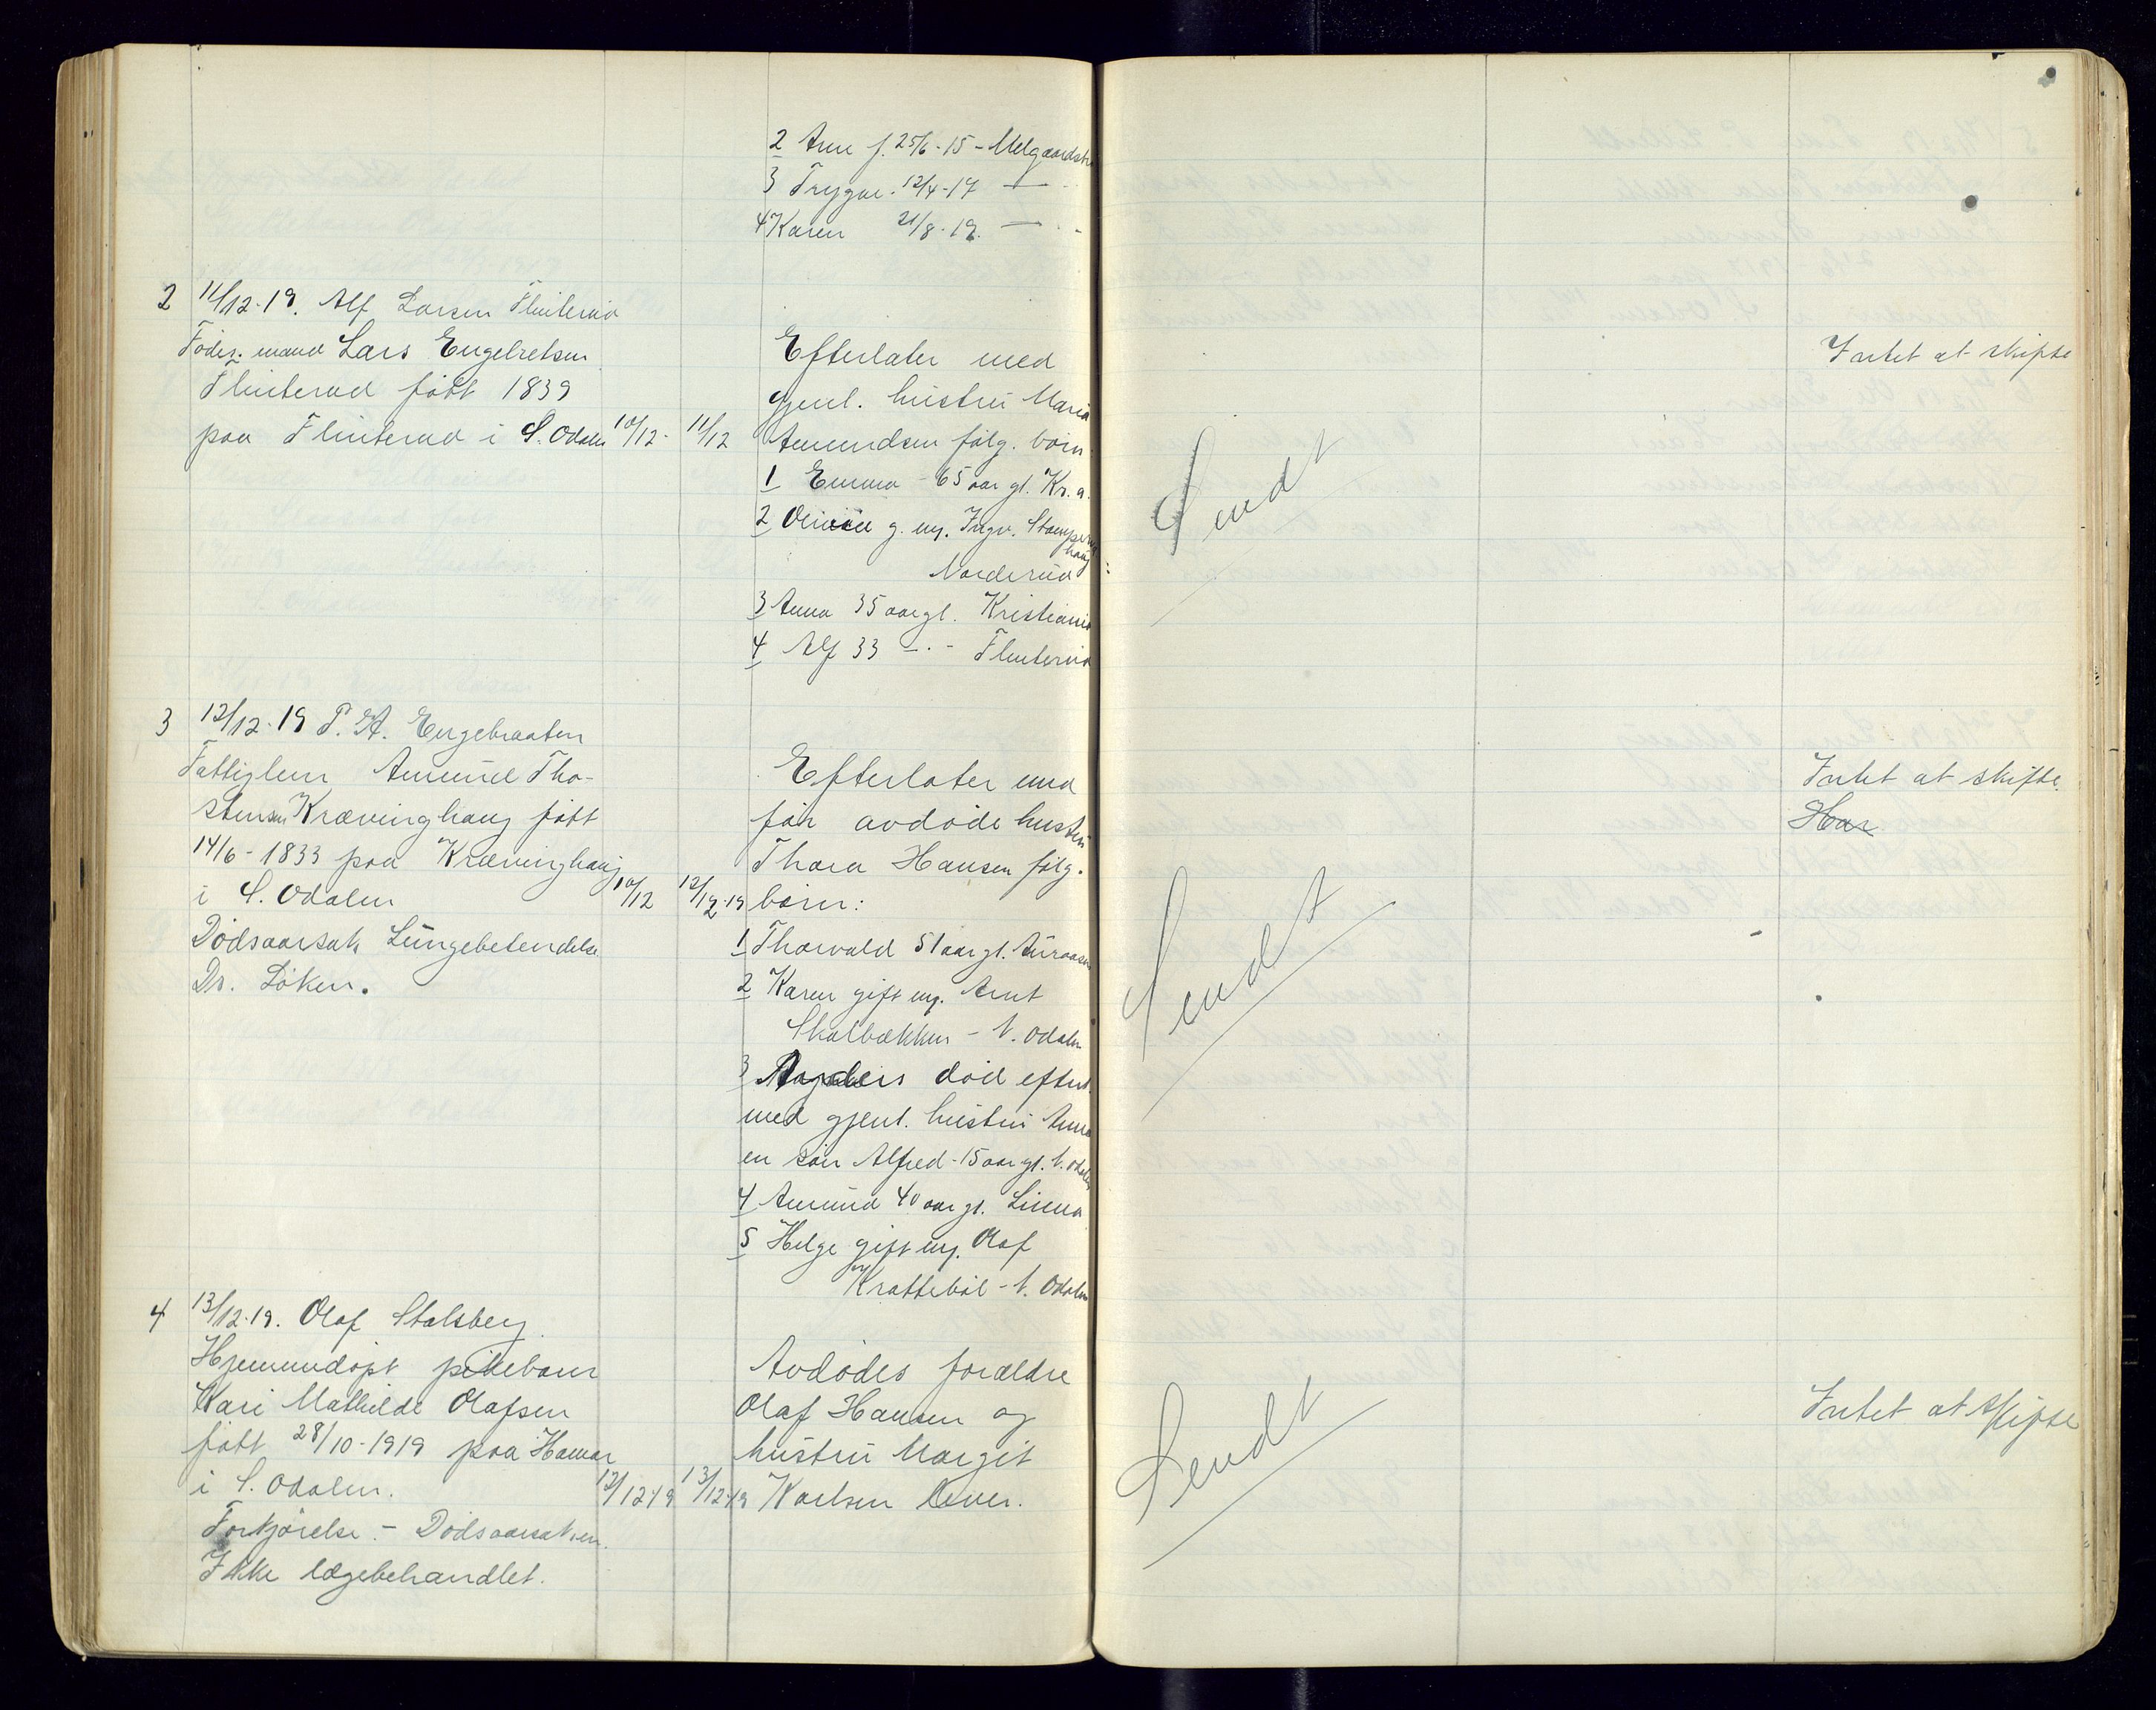 2 Anne f. 25/6-15 - Melgaardst
3 Trygve. 12/4-17 — " -
4 Karen 21/8-19. — " -
2 11/12-19. Alf Larsen Flinterud
Föder. mand Lars Engebretsen
Flinterud født 1839
paa Flinterud i S. Odalen 10/12- 11/12
Efterlater med
gjenl. hustru Maria
Amundsen følg. børn
1 Emma - 65 aar gl. Kr.a.
2 g. m. Ingv. Stomperud
haug
Norderud
3 Anna 35 aar gl. Kristiania
4 Alf 33 - " - Flinterud
Intet at skifte
Sendt
3 12/12-19 P. A. Engebraaten
Fattiglem Amund Tho-
stensen Kræveringhaug født
14/6-1833 paa Kræveringhaug
i S. Odalen 10/12 12/12-19
Dödsaarsak Lungebetendelse
Dr. Löken.
Efterlater med
før avdøde hustru
Thora Hansen følg.
børn:
1 Thorvald 51 aar gl.
2 Karen gift m. Arnt
Skalbækken - N. Odalen
3 død efterl.
med gjenl. hustru Anna
en søn Alfred - 15 aar gl. N. Odalen
4 Amund 40 aar gl.
5 Helge gift m. Olaf
Krattebøl - N. Odalen
Intet at skifte.
Har
Sendt
4 13/12-19. Olaf Stalsberg
Hjemmedøpt pikebarn
Kari Mathilde Olafsen
født 28/10-1919 paa Hamar
i S. Odalen. 12/12-19 13/12-19
Forkjørelse. - Dødsaarsaken.
Ikke lægebehandlet.
Avdødes forældre
Olaf Hansen og
hustru Margit
Karlsen lever.
Intet at skifte
Sendt